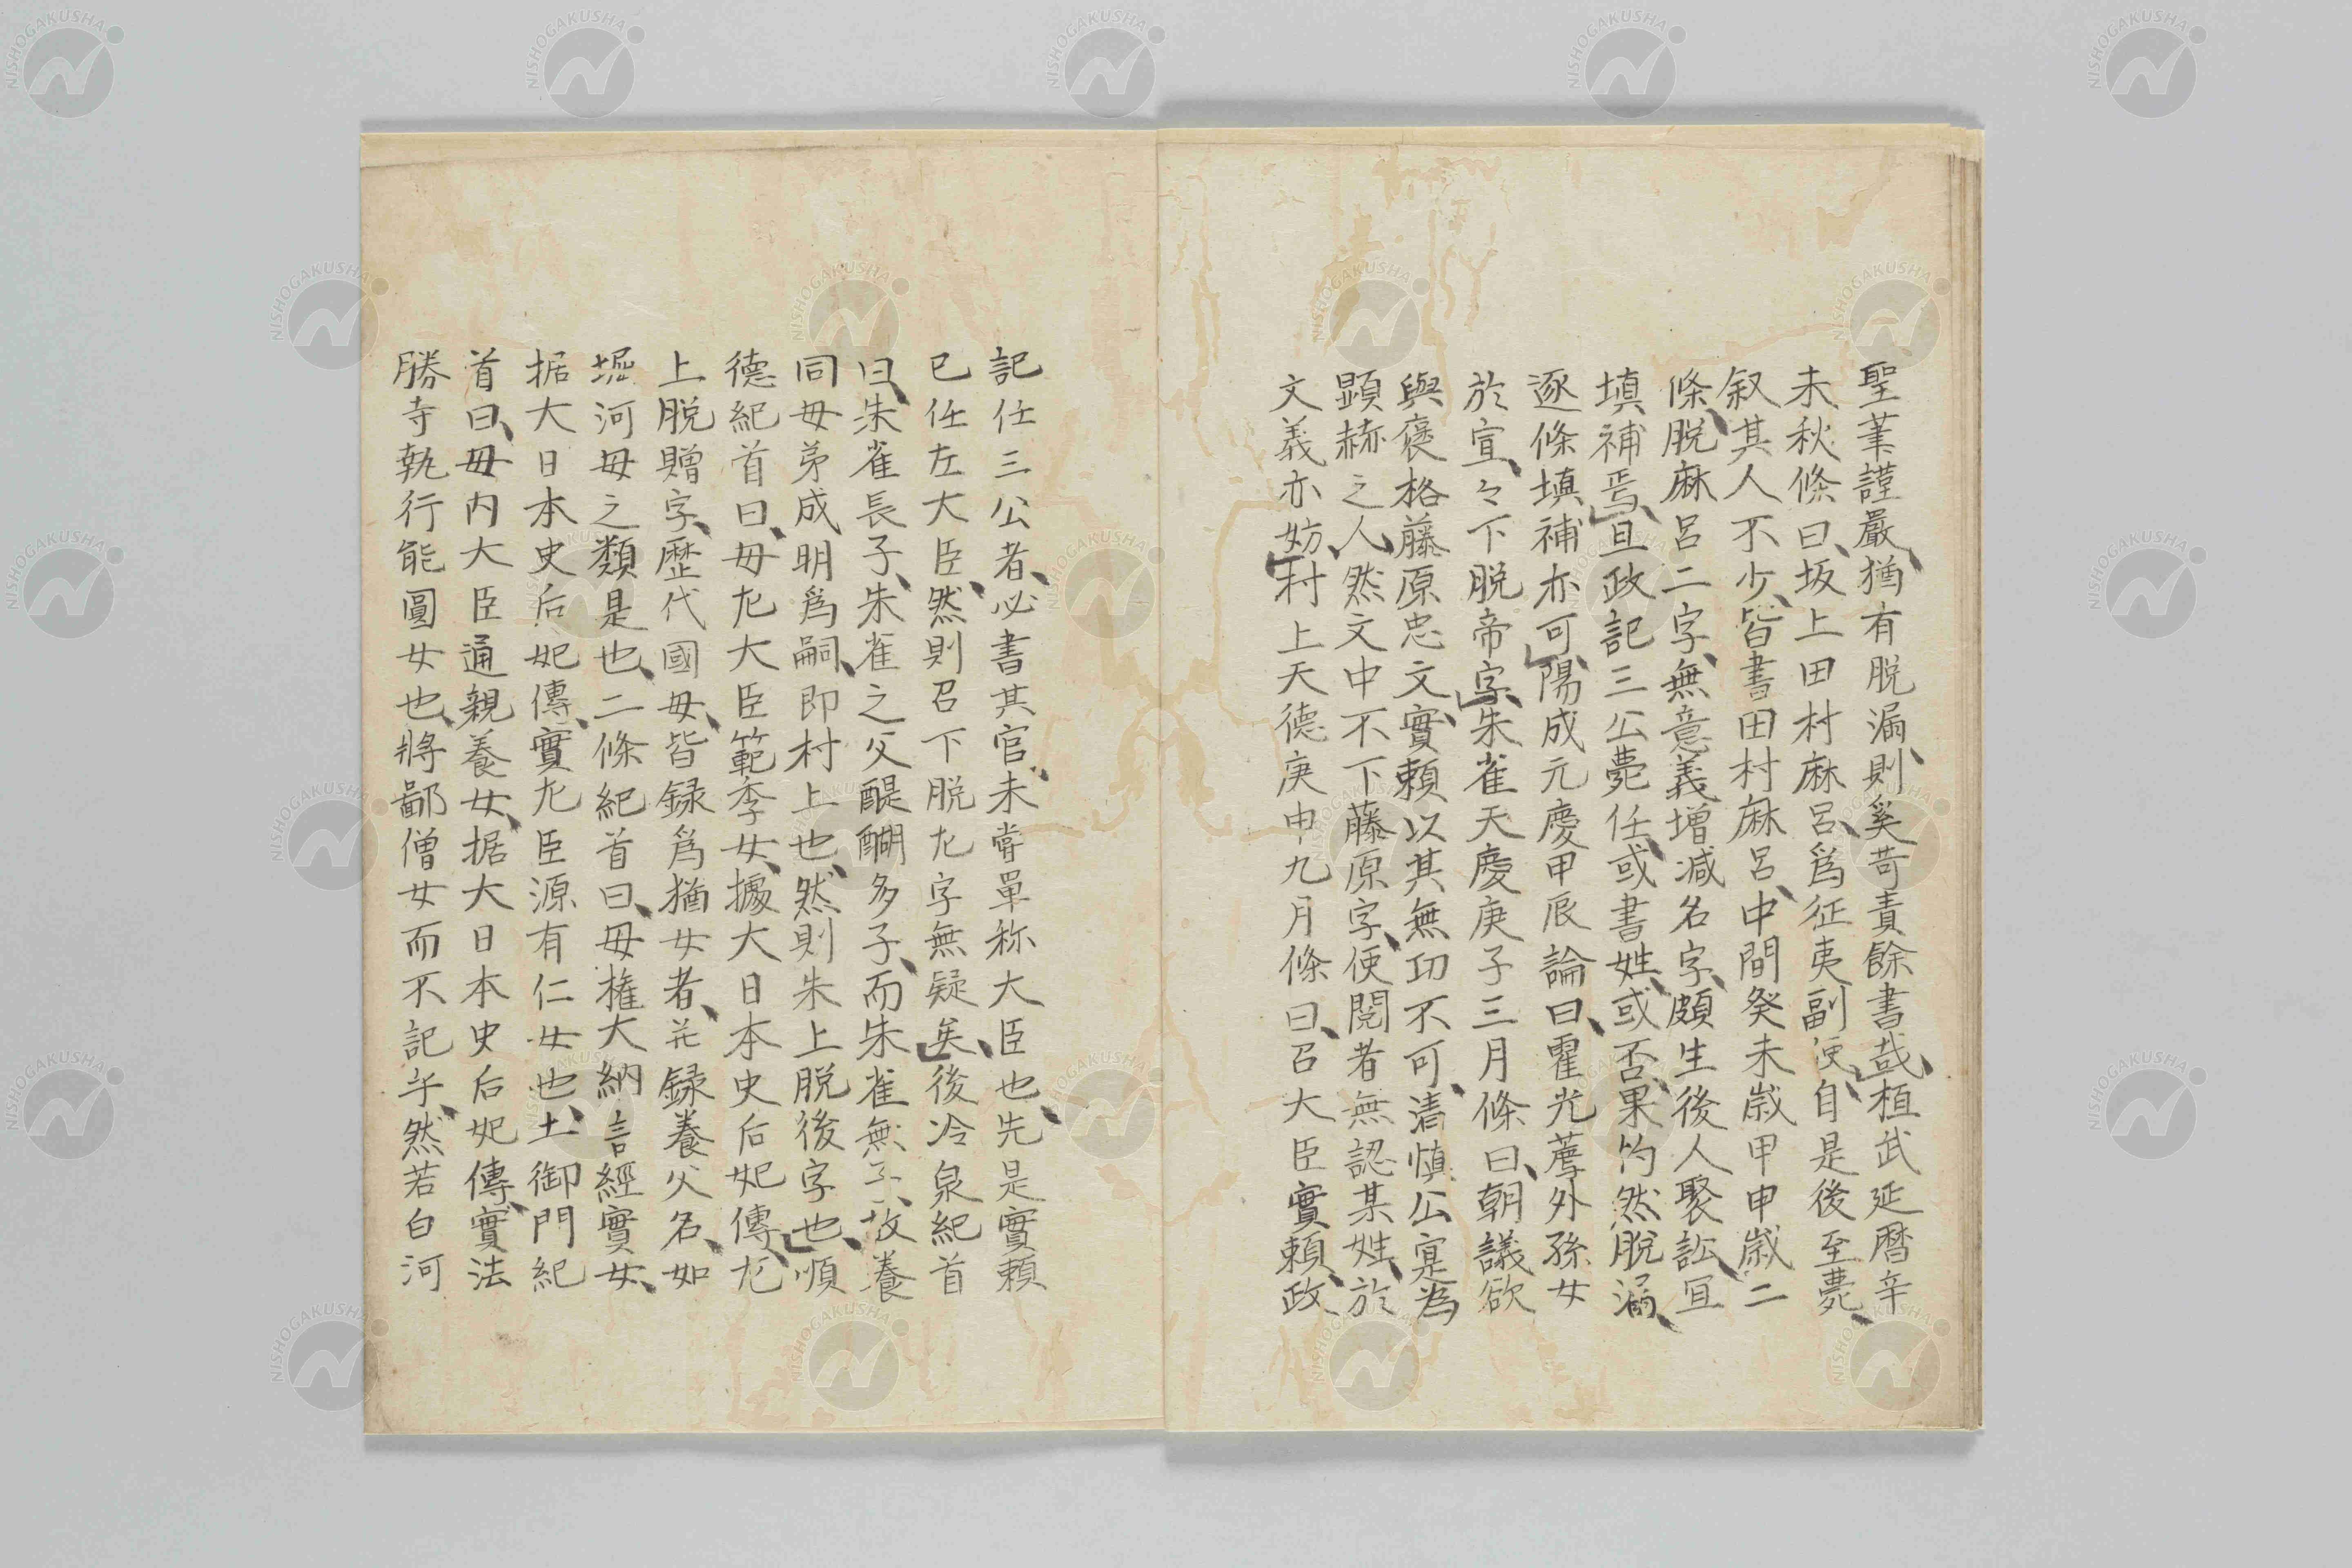 聖筆謹嚴、猶有脱漏、則奚苛責餘書哉、桓武延暦辛
未秋條曰、坂上田村麻呂、爲征夷副使、自是後至薨、
叙其人不少、皆書田村麻呂、中間癸未歳甲申歳二
條、脱麻呂二字、無意義増减名字、頗生後人聚訟、宜
填補焉、且政記三公薨任、或書姓、或否、果灼然脱漏、
逐條填補亦可、陽成元慶甲辰論曰、霍光薦外孫女
於宣、々下脱帝字、朱雀天慶庚子三月條曰、朝議欲
與褒格藤原忠文、實頼以其無功不可、清慎公寔為
顕赫之人、然文中不下藤原字、使閲者無認某姓、於
文義亦妨、村上天徳庚申九月條曰、召大臣實頼、政
記任三公者、必書其官、未嘗單称大臣也、先是實頼
已任左大臣、然則召下脱尢字無疑矣、後冷泉紀首
曰、朱雀長子、朱雀之父醍醐多子、而朱雀無子、故養
同母弟成明爲嗣、即村上也、然則朱上脱後字也、順
徳紀首曰、母尢大臣範季女、據大日本史后妃傳、尢
上脱贈字、歴代國母、皆録爲猶女者、并録養父名、如
堀河母之類是也、二條紀首曰、母権大納言經實女、
据大日本史后妃傳、實尢臣源有仁女也、土御門紀
首曰、母内大臣通親養女、据大日本史后妃傳、實法
勝寺執行能圓女也、將鄙僧女而不記乎、然若白河
NISHOGAKUSHA